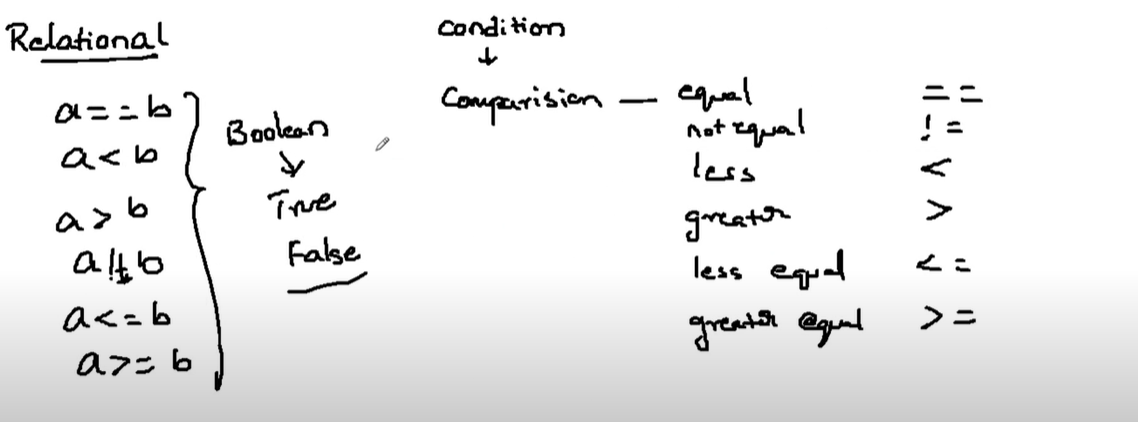 Relational
a==b
a<b
a>b
a!=b
a<=b
a>=b
Boolean
↓
True
False
Condition
↓
Comparision — equal ==
not equal !=
less <
greater >
less equal <=
greater equal >=